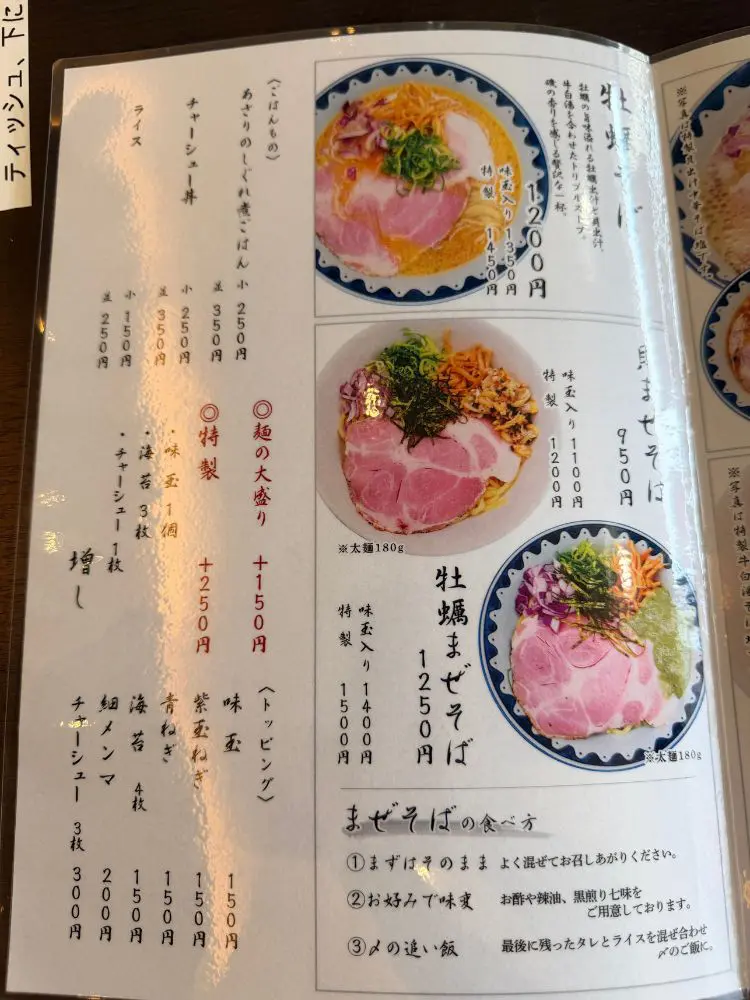 ティッシュ、下に
牡蠣そば
牡蠣の旨味溢れる牡蠣出汁と貝出汁、
牛白湯を合わせたトリプルスープ。
磯の香りを感じる贅沢な一杯。
1200円
味玉入り 1350円
特製 1450円
貝まぜそば
950円
味玉入り 1100円
特製 1200円
※太麺180g
牡蠣まぜそば
1250円
味玉入り 1400円
特製 1500円
※太麺180g
まぜそばの食べ方
①まずはそのまま よく混ぜてお召しあがりください。
②お好みで味変 お酢や辣油、黒煎り七味を
ご用意しております。
③〆の追い飯 最後に残ったタレとライスを混ぜ合わせ
〆のご飯に。
〈ごはんもの〉
あさりのしぐれ煮ごはん 小 250円
並 350円
チャーシュー丼 小 250円
並 350円
ライス 小 150円
並 250円
◎麺の大盛り +150円
◎特製 +250円
・味玉 1個
・海苔 3枚
・チャーシュー 1枚
増し
〈トッピング〉
味玉 150円
紫玉ねぎ 150円
青ねぎ 150円
海苔 4枚 150円
細メンマ 200円
チャーシュー 3枚 300円
※写真は特製貝出汁中華そば塩です。
※写真は特製牛白湯